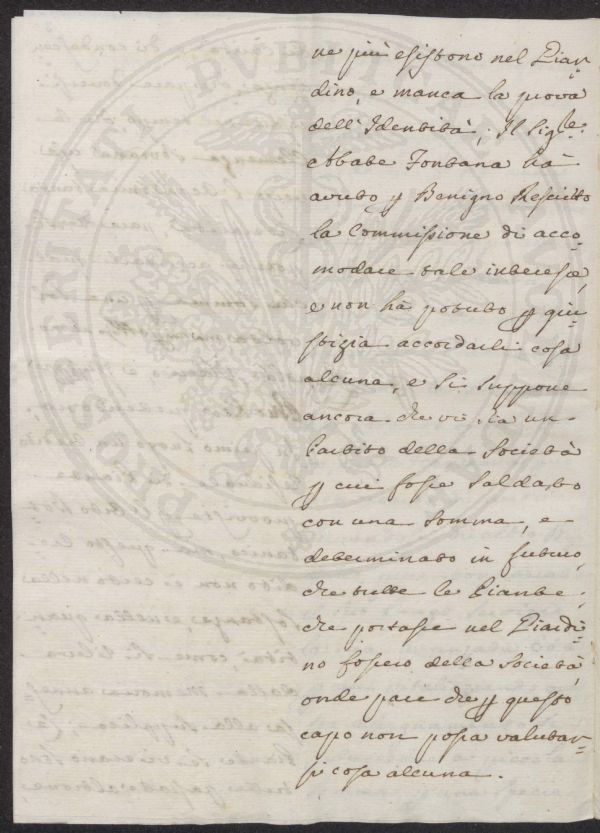 ne più esistono nel Giar-
dino, e manca la prova
dell' Identità, Il Sigre
Abate Fontana ha
avuto p Benigno Rescritto
la Commissione di acco-
modare tale interesse,
e non ha potuto p giu-
stizia accordarli cosa
alcuna, e si suppone
ancora che vi sia un
Partito della Società
p cui fosse saldato
con una somma, e
determinato in futuro,
che tutte le Piante
che portasse nel Giardi-
no fossero della Società,
onde pare che p questo
capo non possa valutar-
si cosa alcuna.